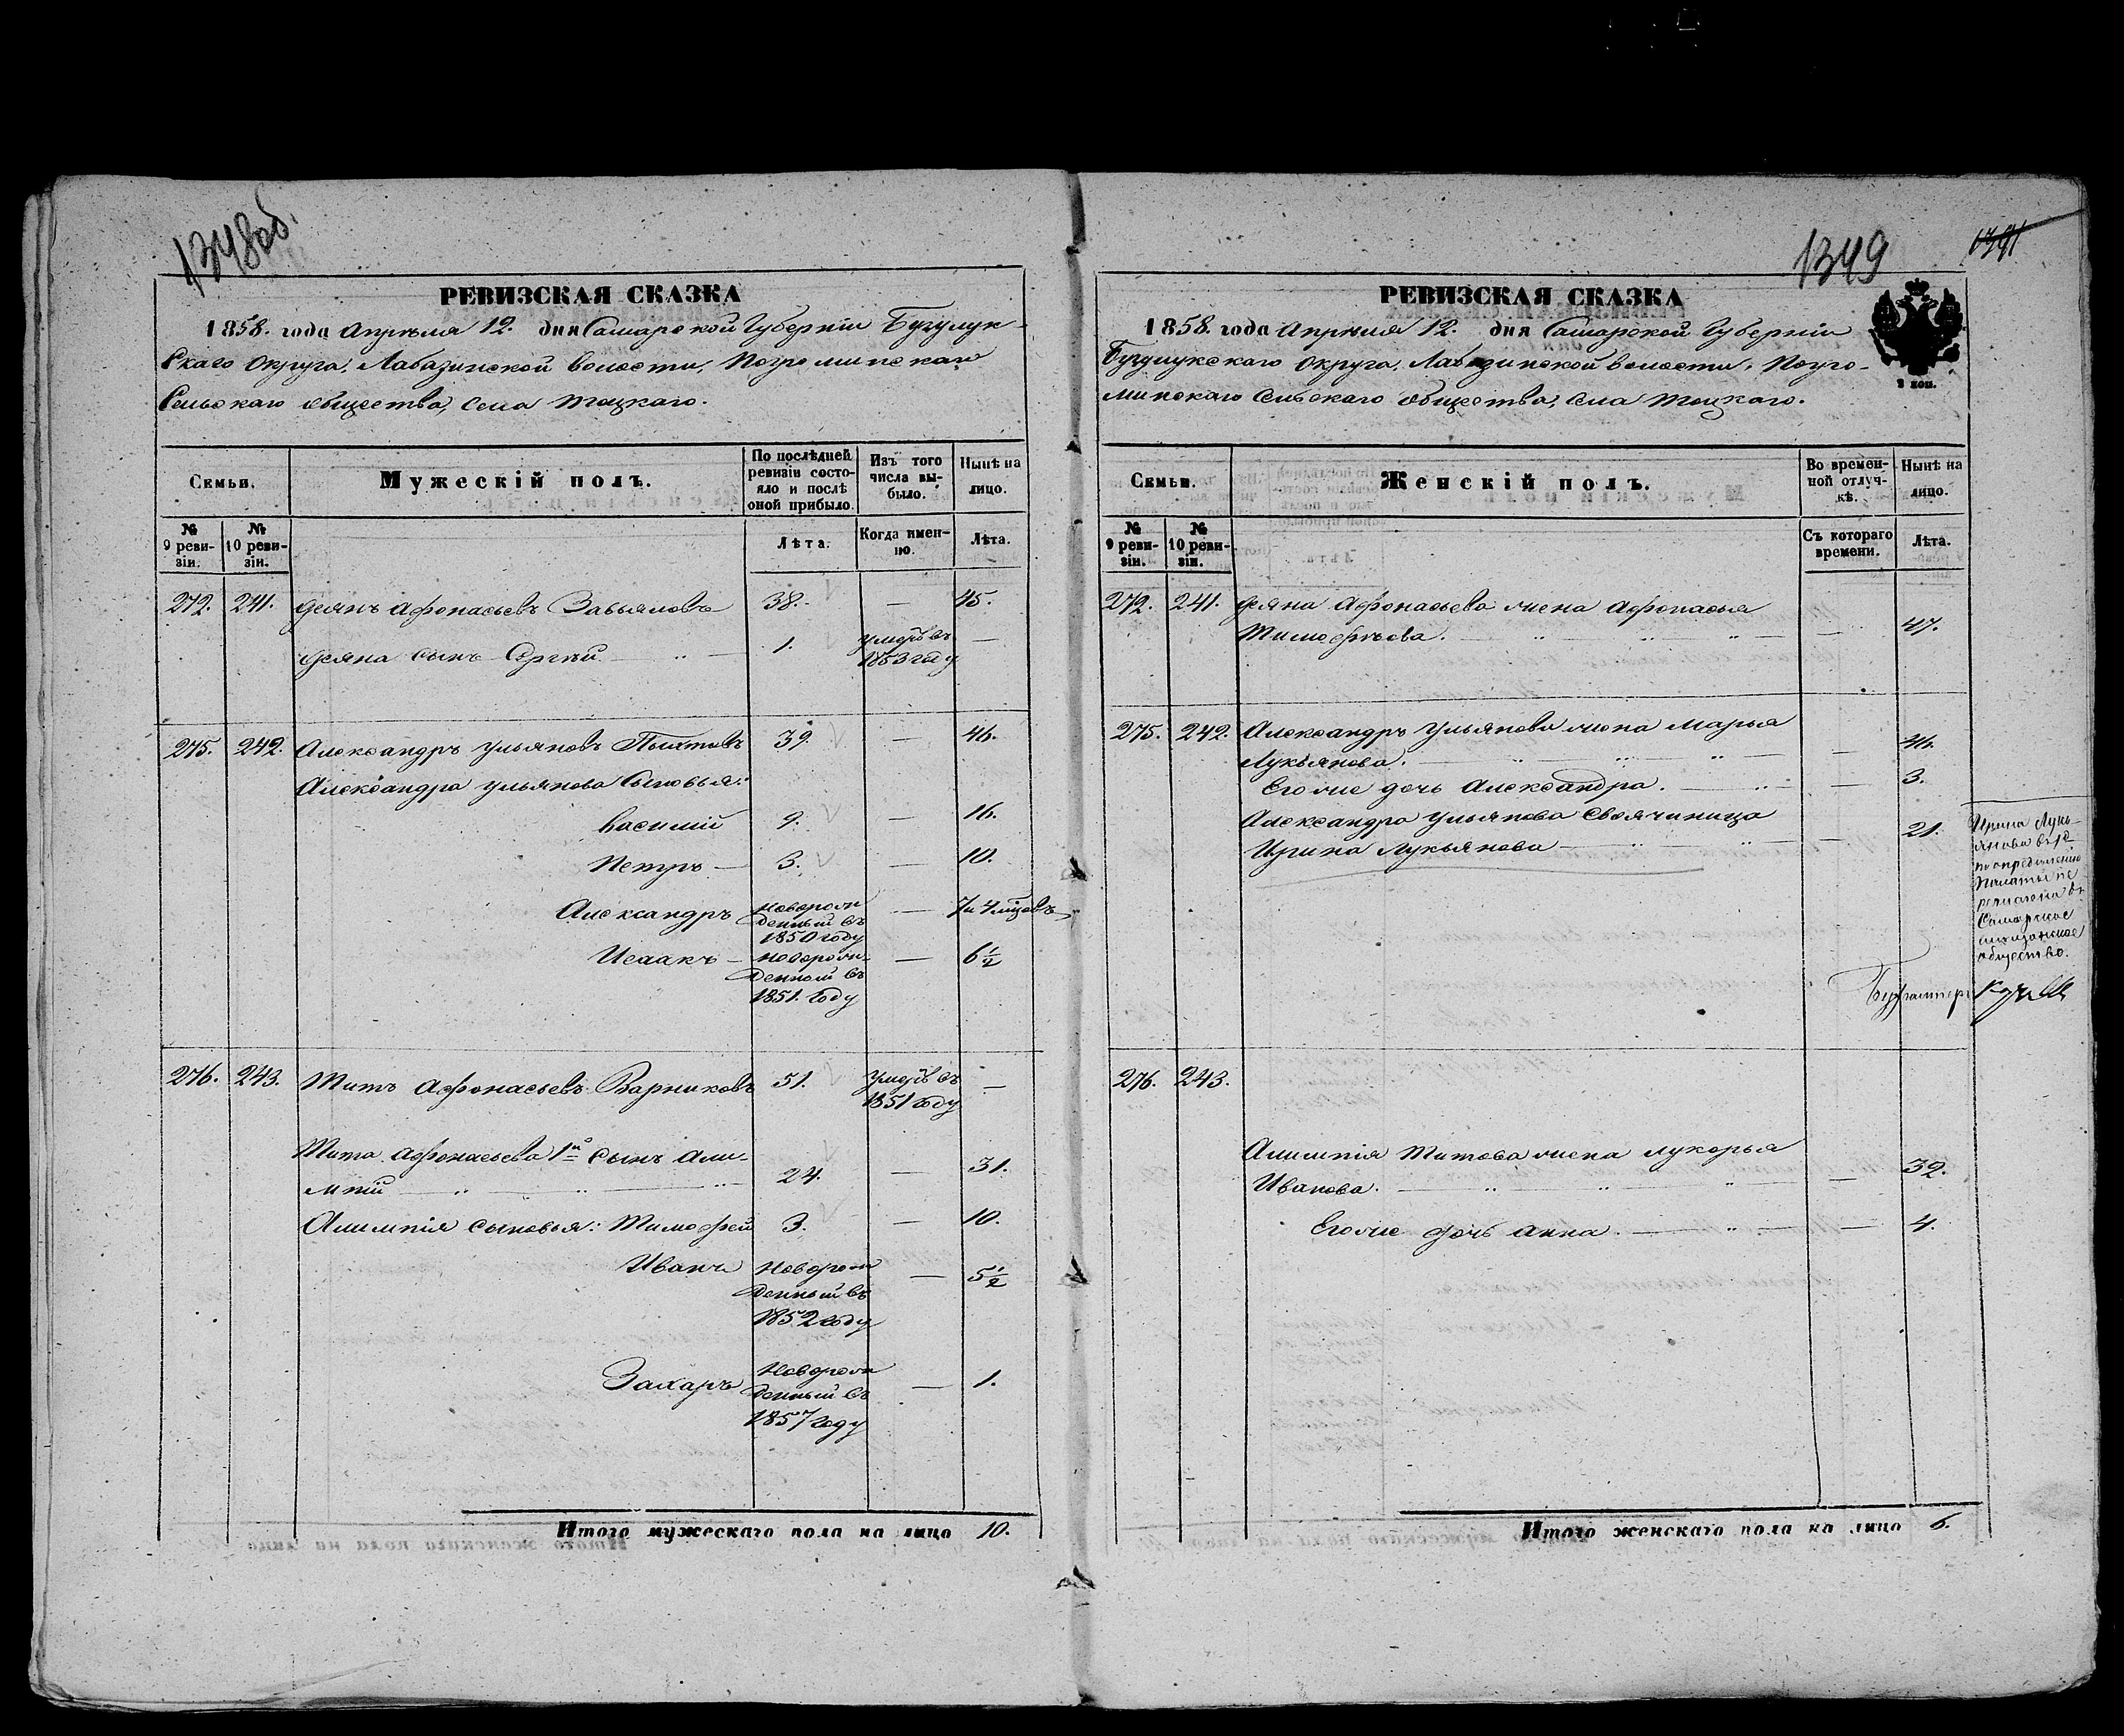 1348об.
РЕВИЗСКАЯ СКАЗКА
1858. года Апрѣля 12. дня Самарской Губерніи Бузулук-
скаго Округа, Лабазинской волости, Погроминскаго
Сельскаго общества, села Тоцкаго.
Семьи.
Мужескій полъ.
По послѣдней ревизіи состояло и послѣ оной прибыло.
Изъ того числа выбыло.
Нынѣ на лицо.
№ 9 ревизіи.
№ 10 ревизіи.
Лѣта.
Когда именно.
Лѣта.
272. 241. Демянъ Афонасьевъ Завьяловъ 38. — 45.
Демяна сынъ Сергѣй 1. умеръ въ 1853 году —
275. 242. Александръ Ульяновъ 39. — 46.
Александра Ульянова сыновья:
Василій 9. — 16.
Петръ — 3. — 10.
Александръ новорожденный въ 1850 году — 7 и 4 мѣсяцовъ
Исаакъ — новорожденный въ 1851. году — 6½
276. 243. Титъ Афонасьевъ Варниковъ 51. умеръ въ 1851 году —
Тита Афонасьева 1й сынъ Али-
мпій 24. — 31.
Алимпія сыновья: Тимофей 3. — 10.
Иванъ новорожденный въ 1852 году — 5½
Захаръ новорожденный въ 1857 году — 1.
Итого мужескаго пола на лицо 10.
1349
1391
РЕВИЗСКАЯ СКАЗКА
1858. года Апрѣля 12. дня Самарской Губерніи
Бузулукскаго Округа, Лабазинской волости, Погро-
минскаго Сельскаго общества, села Тоцкаго.
2 коп.
Семьи.
Женскій полъ.
Во временной отлучкѣ.
Нынѣ на лицо.
№ 9 ревизіи.
№ 10 ревизіи.
Съ котораго времени.
Лѣта.
272. 241. Демяна Афонасьева жена Афонасья
Тимофѣева. — 47.
275. 242. Александръ Ульянова жена Марья
Лукьянова. — 46.
Его же дочь Александра. — 3.
Александра Ульянова своячиница
Ирина Лукьянова — 21.
Ирина Лукь-
янова
по опредѣленію
Палаты пе
речислена въ
Самарское
мѣщанское
общество.
Бухгалтеръ
276. 243.
Алимпія Титова жена Лукерья
Иванова. — 32.
Его же дочь Анна. — 4.
Итого женскаго пола на лицо 6.